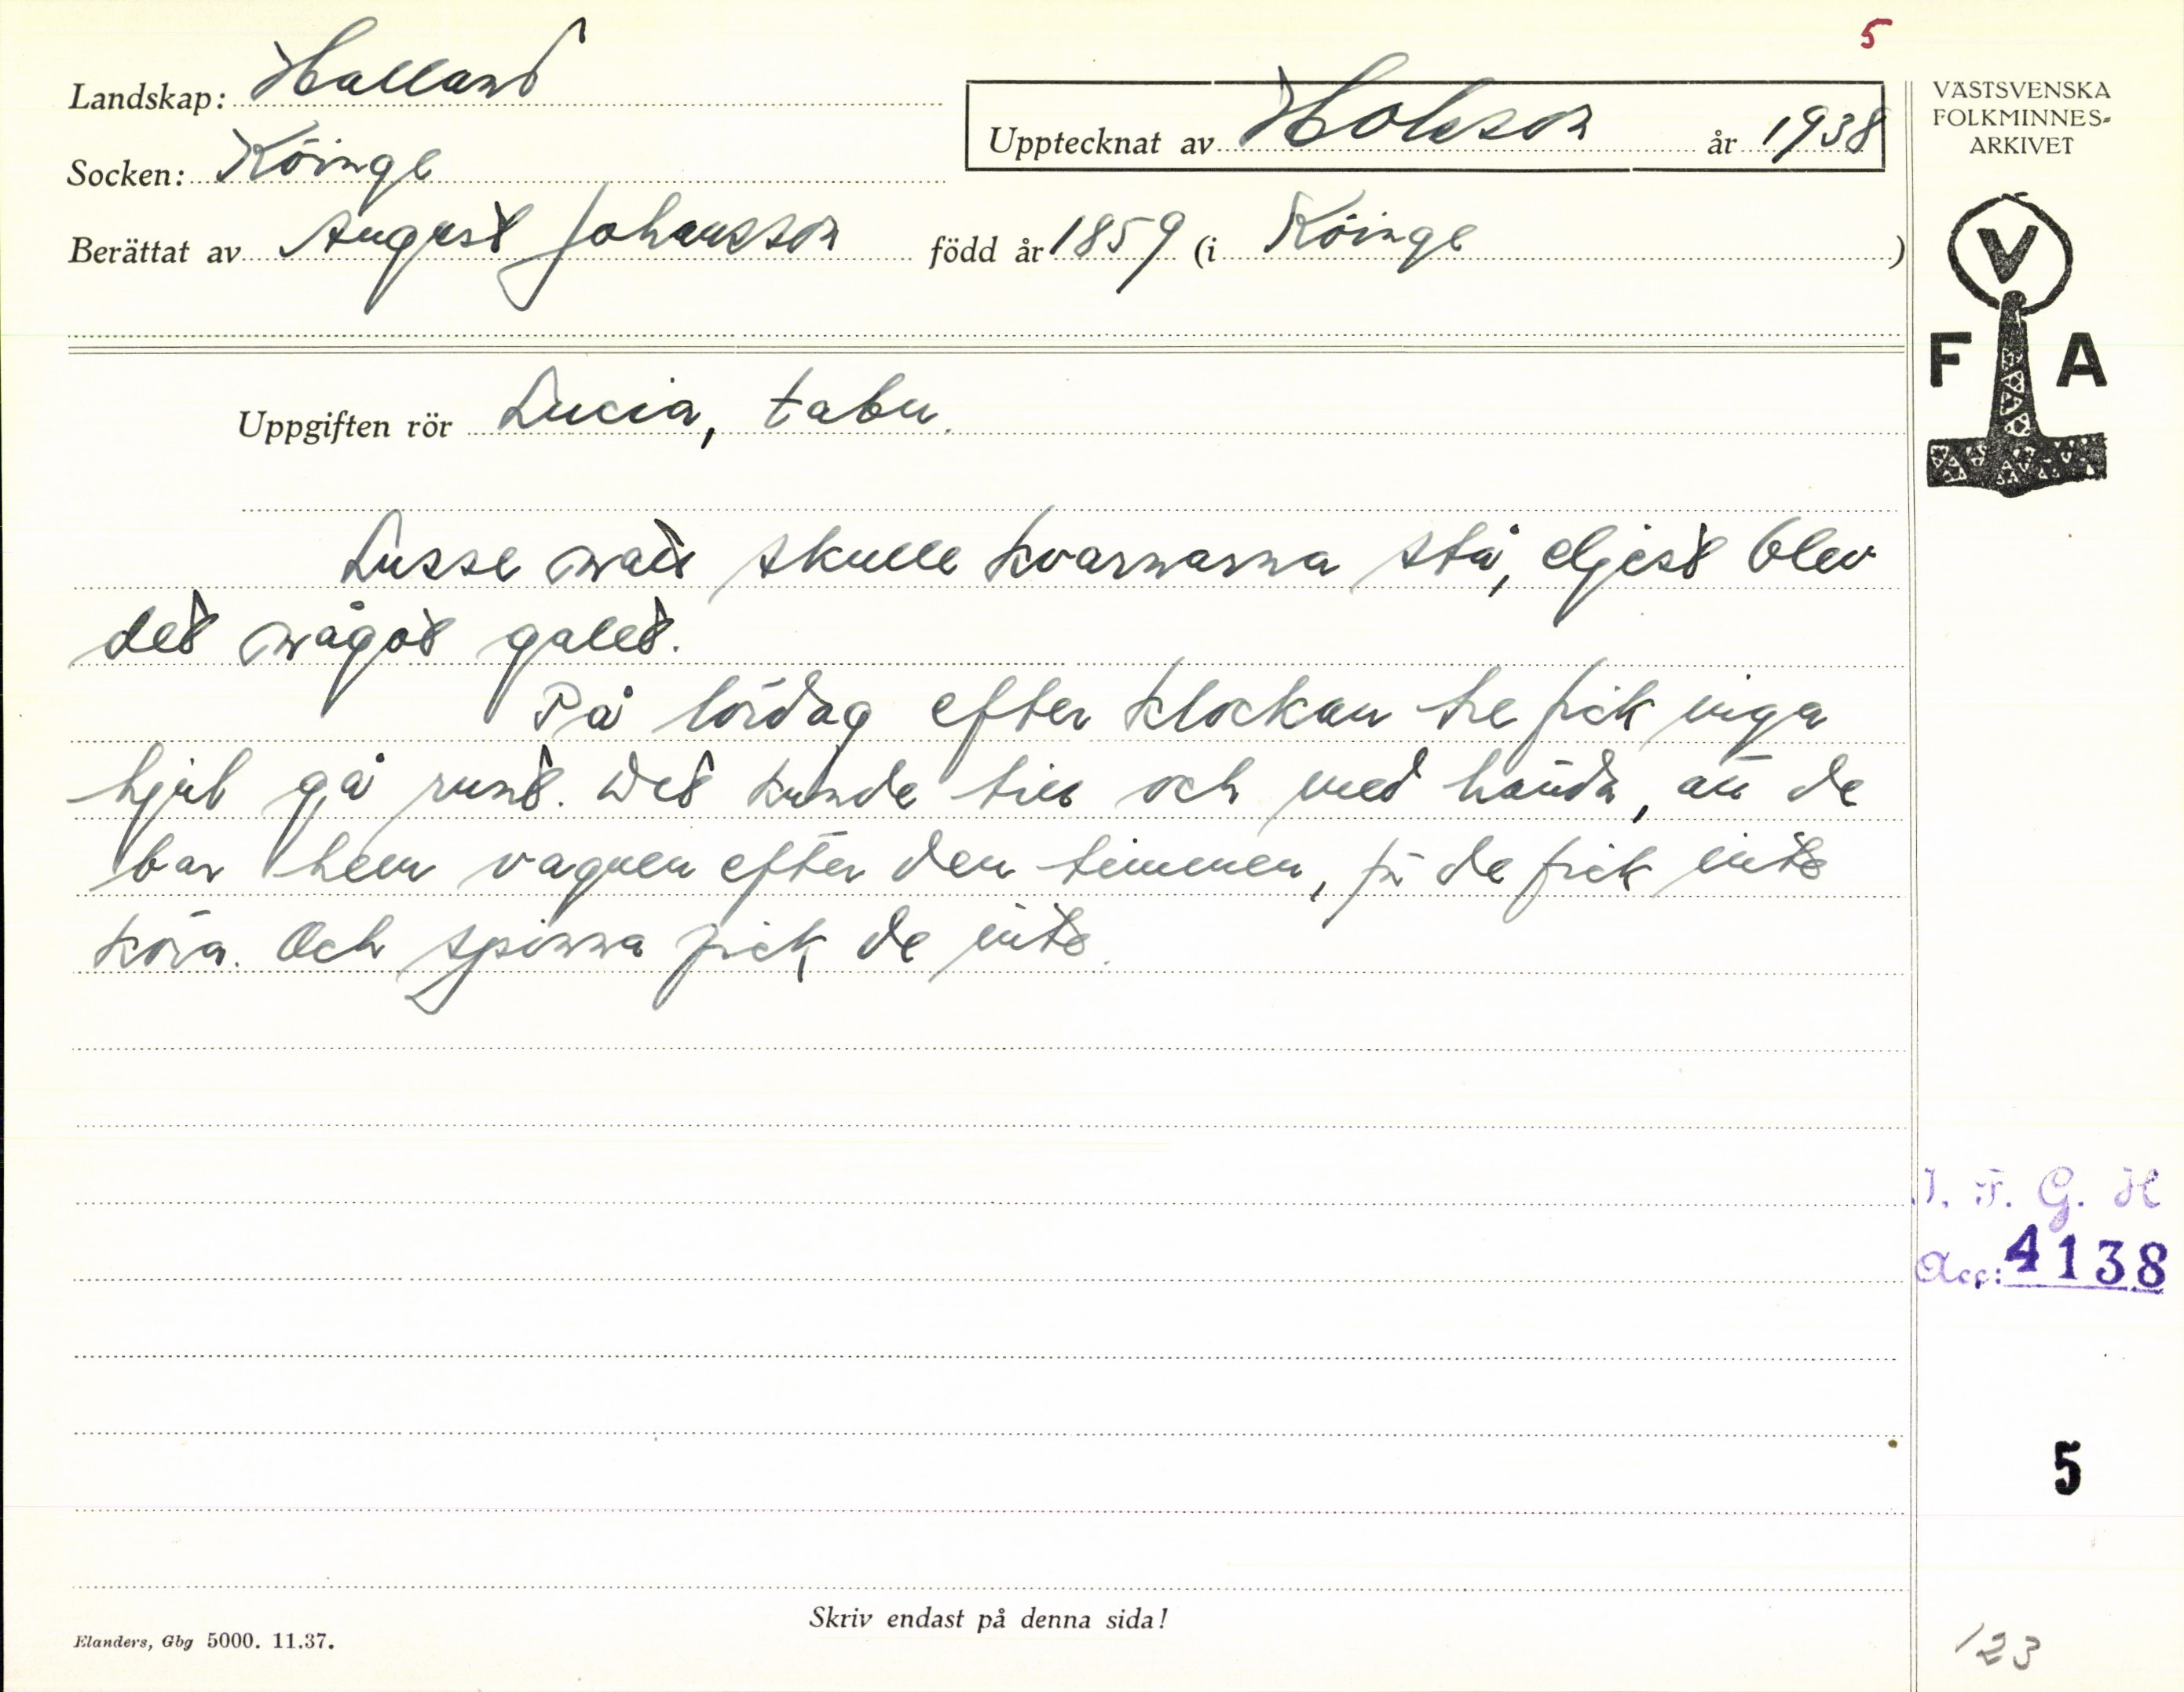 5
Landskap: Halland
Upptecknat av Holeson år 1938
Socken: Köinge
Berättat av August Johansson född år 1859 (i Köinge )
VÄSTSVENSKA
FOLKMINNES-
ARKIVET
V
F A
Uppgiften rör Lucia, tabu.
Lusse natt skulle kvarnarna stå, eljest blev
det något galet.
På lördag efter klockan tre fick inga
hjul gå runt. Det kunde till och med hända, att de
bar hem vagnen efter den timmen, för de fick inte
köra. Och spinna fick de inte.
I. F. G. H
Acc: 4138
5
Skriv endast på denna sida!
Elanders, Gbg 5000. 11.37.
123